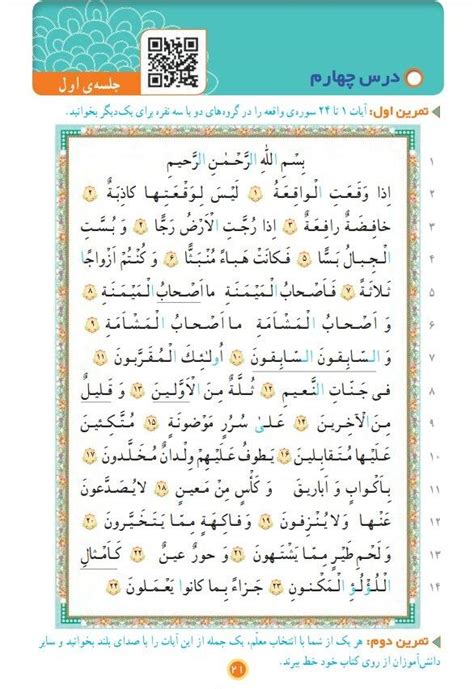 درس چهارم
جلسه‌ی اول
تمرین اول: آیات ۱ تا ۲۴ سوره‌ی واقعه را در گروه‌های دو یا سه نفره برای یک‌دیگر بخوانید.
۱ بِسْمِ اللهِ الرَّحْمٰنِ الرَّحیمِ
۲ اِذا وَقَعَتِ الْواقِعَةُ ۱ لَیْسَ لِوَقْعَتِها کاذِبَةٌ ۲
۳ خافِضَةٌ رافِعَةٌ ۳ اِذا رُجَّتِ الْاَرْضُ رَجًّا ۴ وَ بُسَّتِ
۴ الْجِبالُ بَسًّا ۵ فَکانَتْ هَباءً مُنْبَثًّا ۶ وَ کُنْتُمْ اَزْواجًا
۵ ثَلاثَةً ۷ فَاَصْحابُ الْمَیْمَنَةِ ما اَصْحابُ الْمَیْمَنَةِ ۸
۶ وَ اَصْحابُ الْمَشْاَمَةِ ما اَصْحابُ الْمَشْاَمَةِ ۹
۷ وَ السّابِقونَ السّابِقونَ ۱۰ اُولٰئِکَ الْمُقَرَّبونَ ۱۱
۸ فی جَنّاتِ النَّعیمِ ۱۲ ثُلَّةٌ مِنَ الْاَوَّلینَ ۱۳ وَ قَلیلٌ
۹ مِنَ الْآخِرینَ ۱۴ عَلیٰ سُرُرٍ مَوْضونَةٍ ۱۵ مُتَّکِئینَ
۱۰ عَلَیْها مُتَقابِلینَ ۱۶ یَطوفُ عَلَیْهِمْ وِلْدانٌ مُخَلَّدونَ ۱۷
۱۱ بِاَکْوابٍ وَ اَباریقَ وَ کَأْسٍ مِنْ مَعینٍ ۱۸ لا یُصَدَّعونَ
۱۲ عَنْها وَ لا یُنْزِفونَ ۱۹ وَ فاکِهَةٍ مِمّا یَتَخَیَّرونَ ۲۰
۱۳ وَ لَحْمِ طَیْرٍ مِمّا یَشْتَهونَ ۲۱ وَ حورٌ عینٌ ۲۲ کَاَمْثالِ
۱۴ اللُّؤْلُؤِ الْمَکْنونِ ۲۳ جَزاءً بِما کانوا یَعْمَلونَ ۲۴
تمرین دوم: هر یک از شما با انتخاب معلّم، یک جمله از این آیات را با صدای بلند بخوانید و سایر
دانش‌آموزان از روی کتاب خود خط ببرند.
۲۱